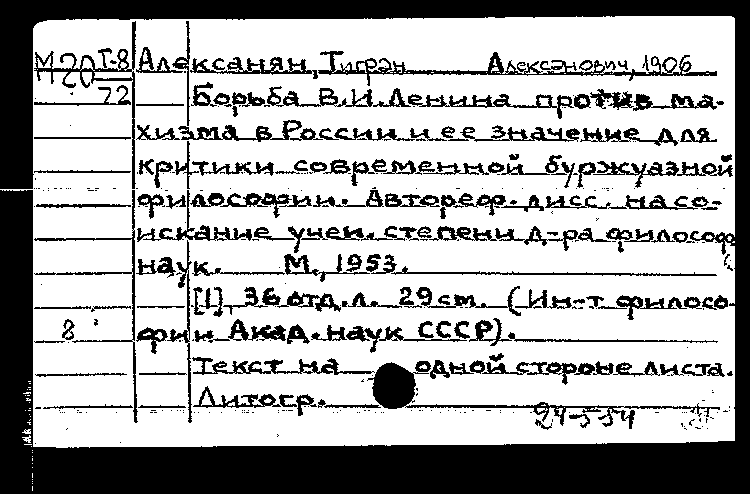 М20 Г-8 Алексанян, Тигрэн Алексэнович, 1906
72 Борьба В.И.Ленина против ма-
хизма в России и ее значение для
критики современной буржуазной
философии. Автореф. дисс. на со-
искание учен. степени д-ра философ
наук. М., 1953.
[1], 36 отд.л. 29 см. (Ин-т филосо-
8 фии Акад. наук СССР).
Текст на одной стороне листа.
Литогр.
24-5-54